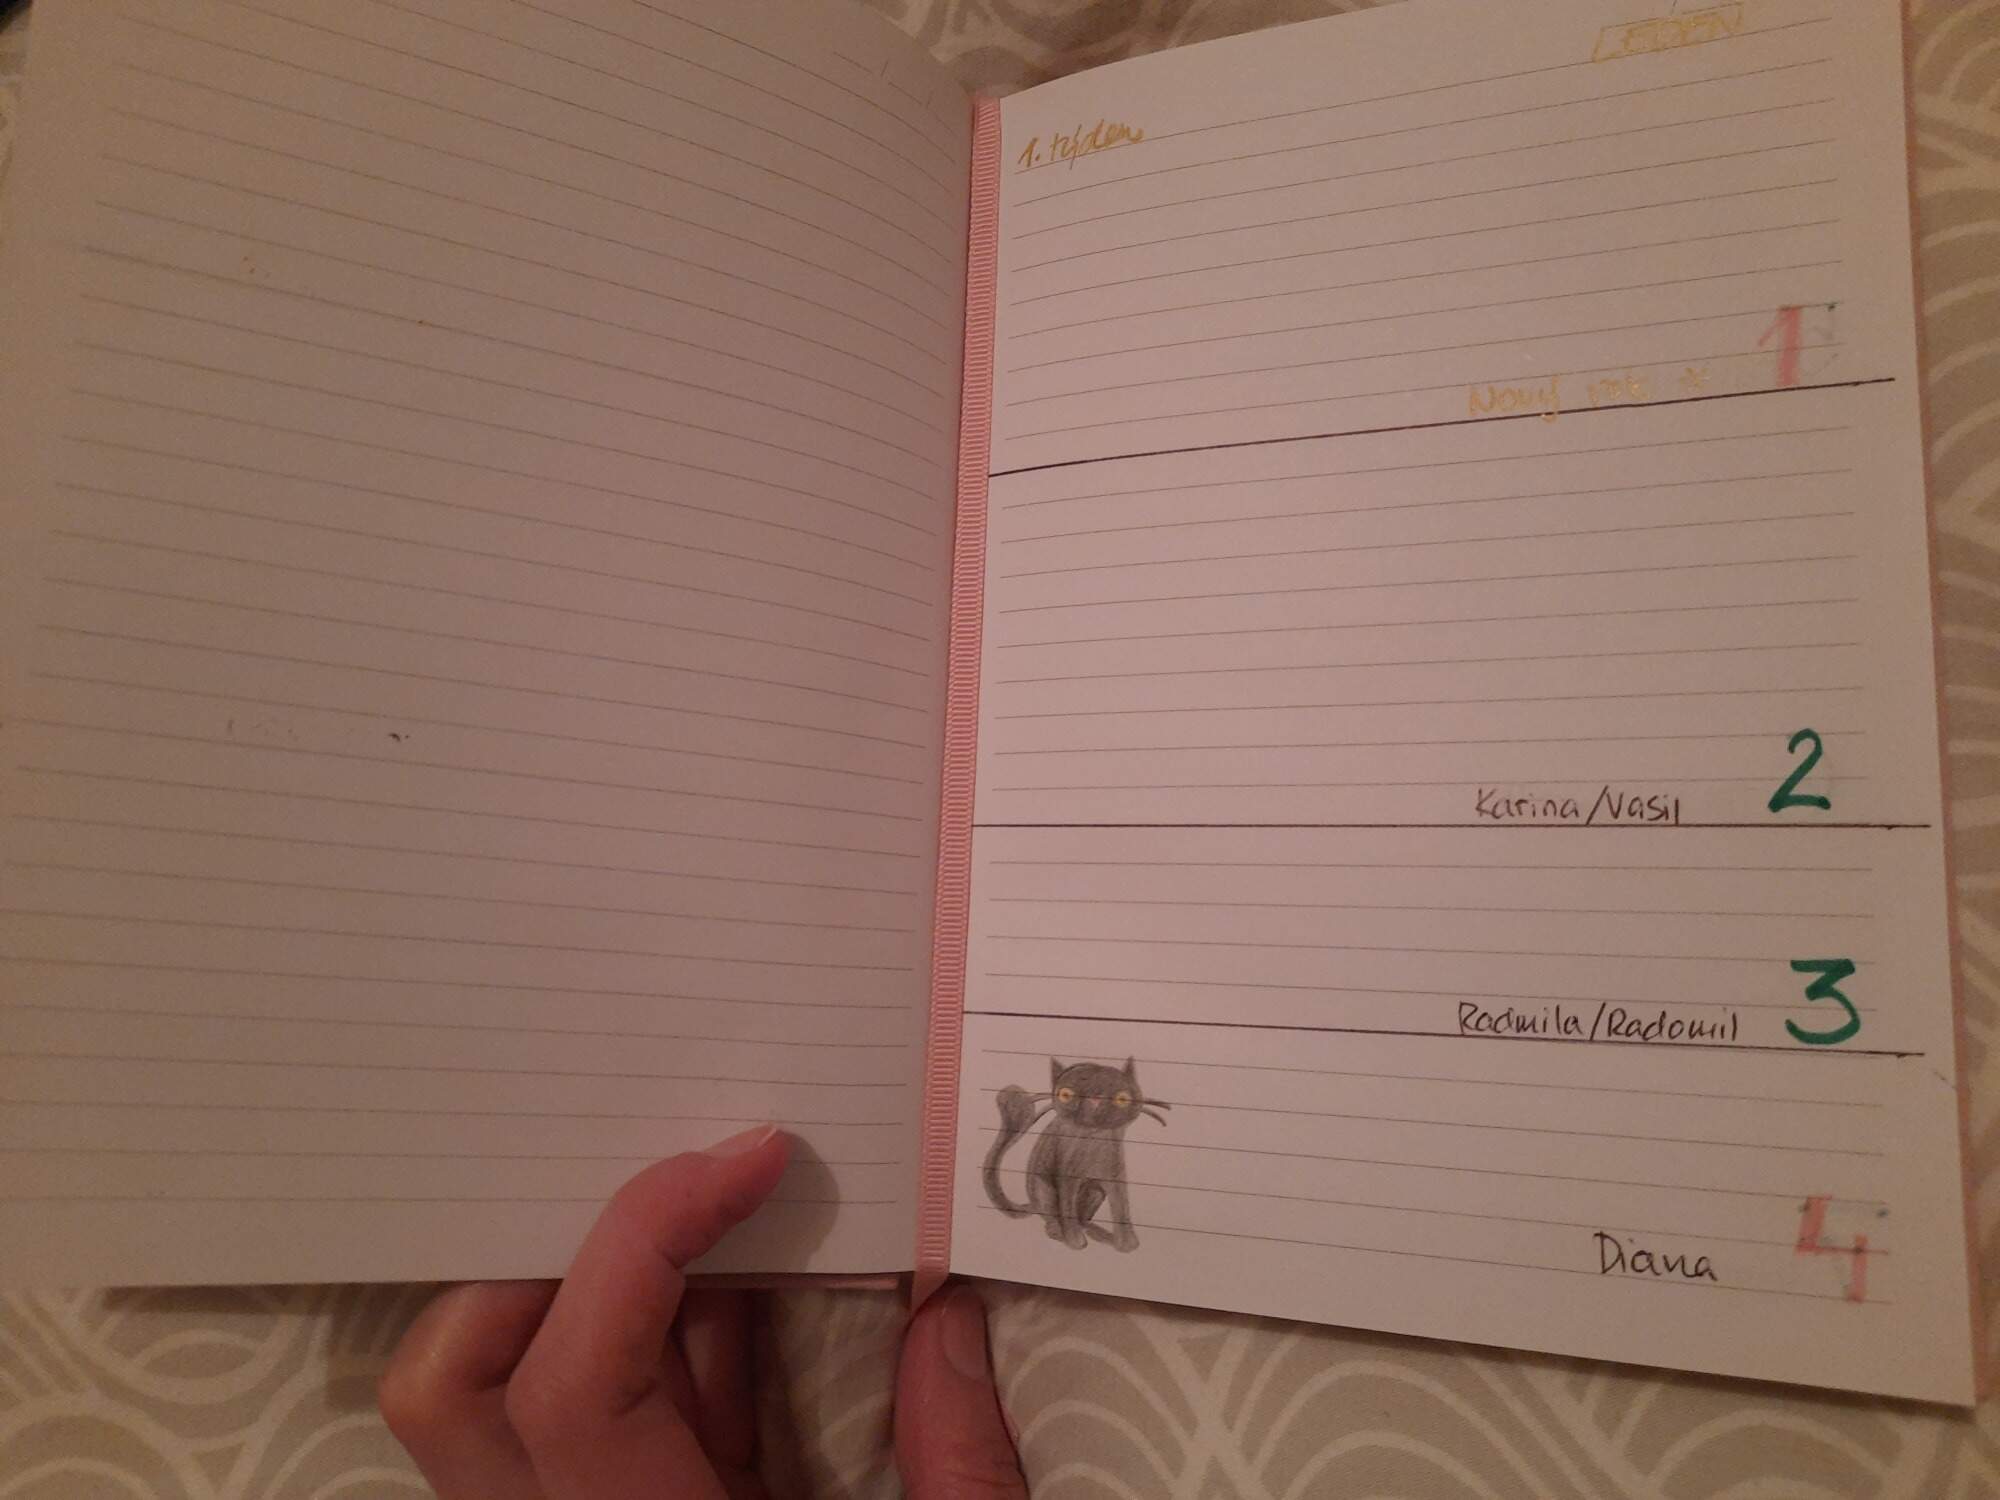 LEDEN
1. týden
1
Nový rok *
Karina/Vasil 2
Radmila/Radomil 3
Diana 4